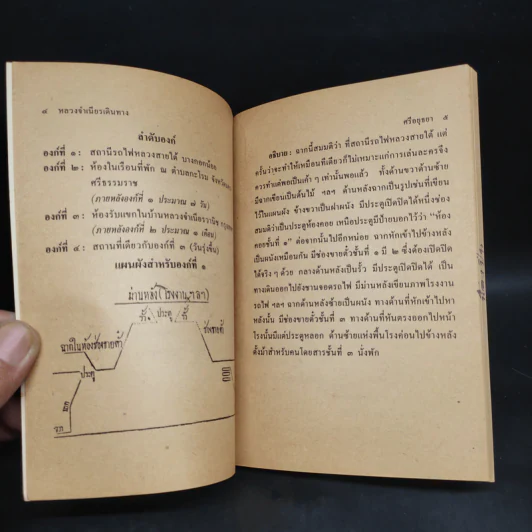 ๘ หลวงจำเนียรเดินทาง
ลำดับองก์
องก์ที่ ๑: สถานีรถไฟหลวงสายใต้ บางกอกน้อย
องก์ที่ ๒: ห้องในเรือนที่พัก ณ ตำบลกะโรม จังหวัด
ศรีธรรมราช
(ภายหลังองก์ที่ ๑ ประมาณ ๗ วัน)
องก์ที่ ๓: ห้องรับแขกในบ้านหลวงจำเนียร
(ภายหลังองก์ที่ ๒ ประมาณ ๑ เดือน)
องก์ที่ ๔: สถานที่เดียวกับองก์ที่ ๓ (วันรุ่งขึ้น)
แผนผังสำหรับองก์ที่ ๑
ม่านหลัง (โรงงาน ฯลฯ)
รั้ว ประตู รั้ว
ประตู
ศรีอยุธยา ๕
อธิบาย: ฉากนี้สมมติว่า ที่สถานีรถไฟหลวงสายใต้ แต่
ครั้นว่าจะทำให้เหมือนทีเดียวก็ไม่เหมาะแก่การเล่นละครจึง
ควรทำแต่พอเป็นเค้า ๆ เท่านั้นพอแล้ว ทั้งด้านขวาด้านซ้าย
มีฉากเขียนเป็นต้นไม้ ฯลฯ ด้านหลังฉากเป็นรูปเช่นที่เขียน
ไว้ในแผนผัง ข้างขวาเป็นฝาผนัง มีประตูเปิดปิดได้หนึ่งช่อง
สมมติว่าเป็นประตูห้องคอย เหนือประตูมีป้ายบอกไว้ว่า "ห้อง
คอยชั้นที่ ๑" ต่อฉากนั้นไปอีกหน่อย ฉากหักเข้าไปข้างหลัง
เป็นผนังเหมือนกัน มีช่องขายตั๋วชั้นที่ ๑ มี ๒ ซึ่งต้องเปิดปิด
ได้จริง ๆ ด้วย กลางด้านหลังเป็นรั้ว มีประตูเปิดปิดได้ เป็น
ทางเดินออกไปยังชานชอตรถไฟ มีม่านหลังเขียนภาพโรงงาน
รถไฟ ฯลฯ ฉากด้านหลังซ้ายเป็นผนัง ทางด้านที่หักเข้าไปหา
หลังนั้น มีช่องขายตั๋วชั้นที่ ๓ ทางด้านที่หันตรงออกไปหน้า
โรงนั้นมีแต่ประตูหลอก ด้านซ้ายแห่งพื้นโรงค่อนไปข้างหลัง
ตั้งม้าสำหรับคนโดยสารชั้นที่ ๓ นั่งพัก